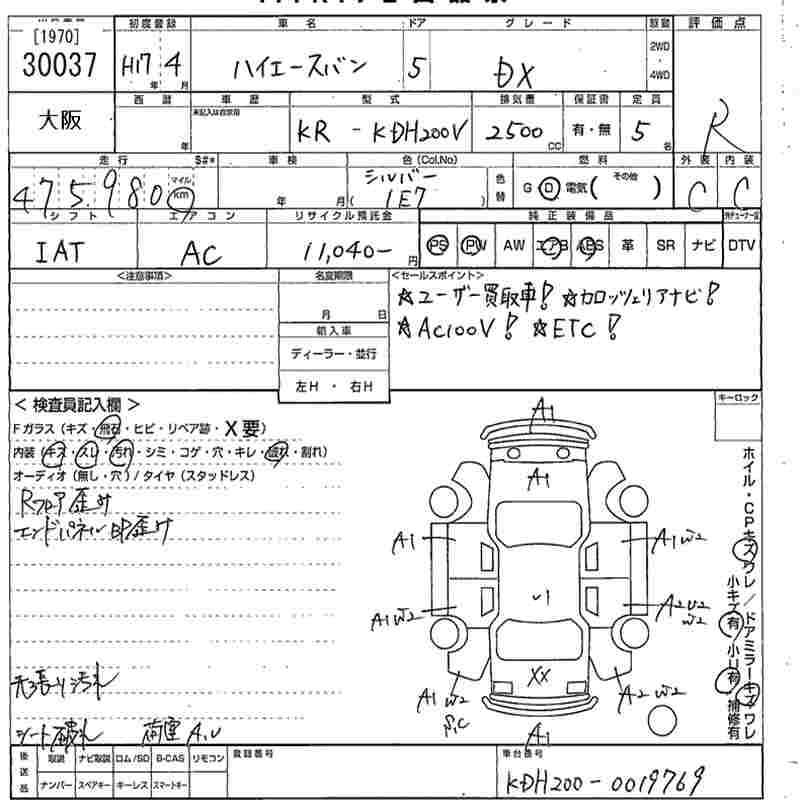 [1970]
30037
初度登録 車名 ドア グレード
H17年 4月 ハイエースバン 5 DX
2WD・4WD
評価点
R
大阪
西暦 車歴 型式 排気量 保証書 定員
年 KR - KDH200V 2500 CC 有・無 5名
走行 S#* 車検 色(Col,No) 燃料 外装 内装
475,980 マイル km 年 月 シルバー (1E7) 色替 G D 電気 (その他) C C
シフト エアコン リサイクル預託金 純正装備品
IAT AC 11,040-円 PS PW AW エアB ABS 革 SR ナビ DTV
<注意事項> 名変期限 <セールスポイント>
月 日
☆ユーザー買取車! ☆カロッツェリアナビ!
☆AC100V! ☆ETC!
輸入車
ディーラー・並行
左H ・ 右H
<検査員記入欄>
キーロック
Fガラス (キズ・飛石・ヒビ・リペア跡・X要)
内装 (キズ・スレ・汚れ・シミ・コゲ・穴・キレ・破れ・割れ)
オーディオ (無し・穴) / タイヤ (スタッドレス)
Rフロア歪み
エンドパネルBP歪み
天張り汚れ
シート破れ 荷室 A,U
A1
A1
A1 A1 W2
U1
A1 W2 A2 U2 W2
XX
A1 W2 A2 W2
A1
ホイル・CPキズワレ/ドアミラーキズワレ
小キズ有/小U有・補修有
後送品 取説 ナビ取説 ロム/SD B-CAS リモコン 登録番号 車台番号
ナンバー スペアキー キーレス スマートキー KDH200-0019769